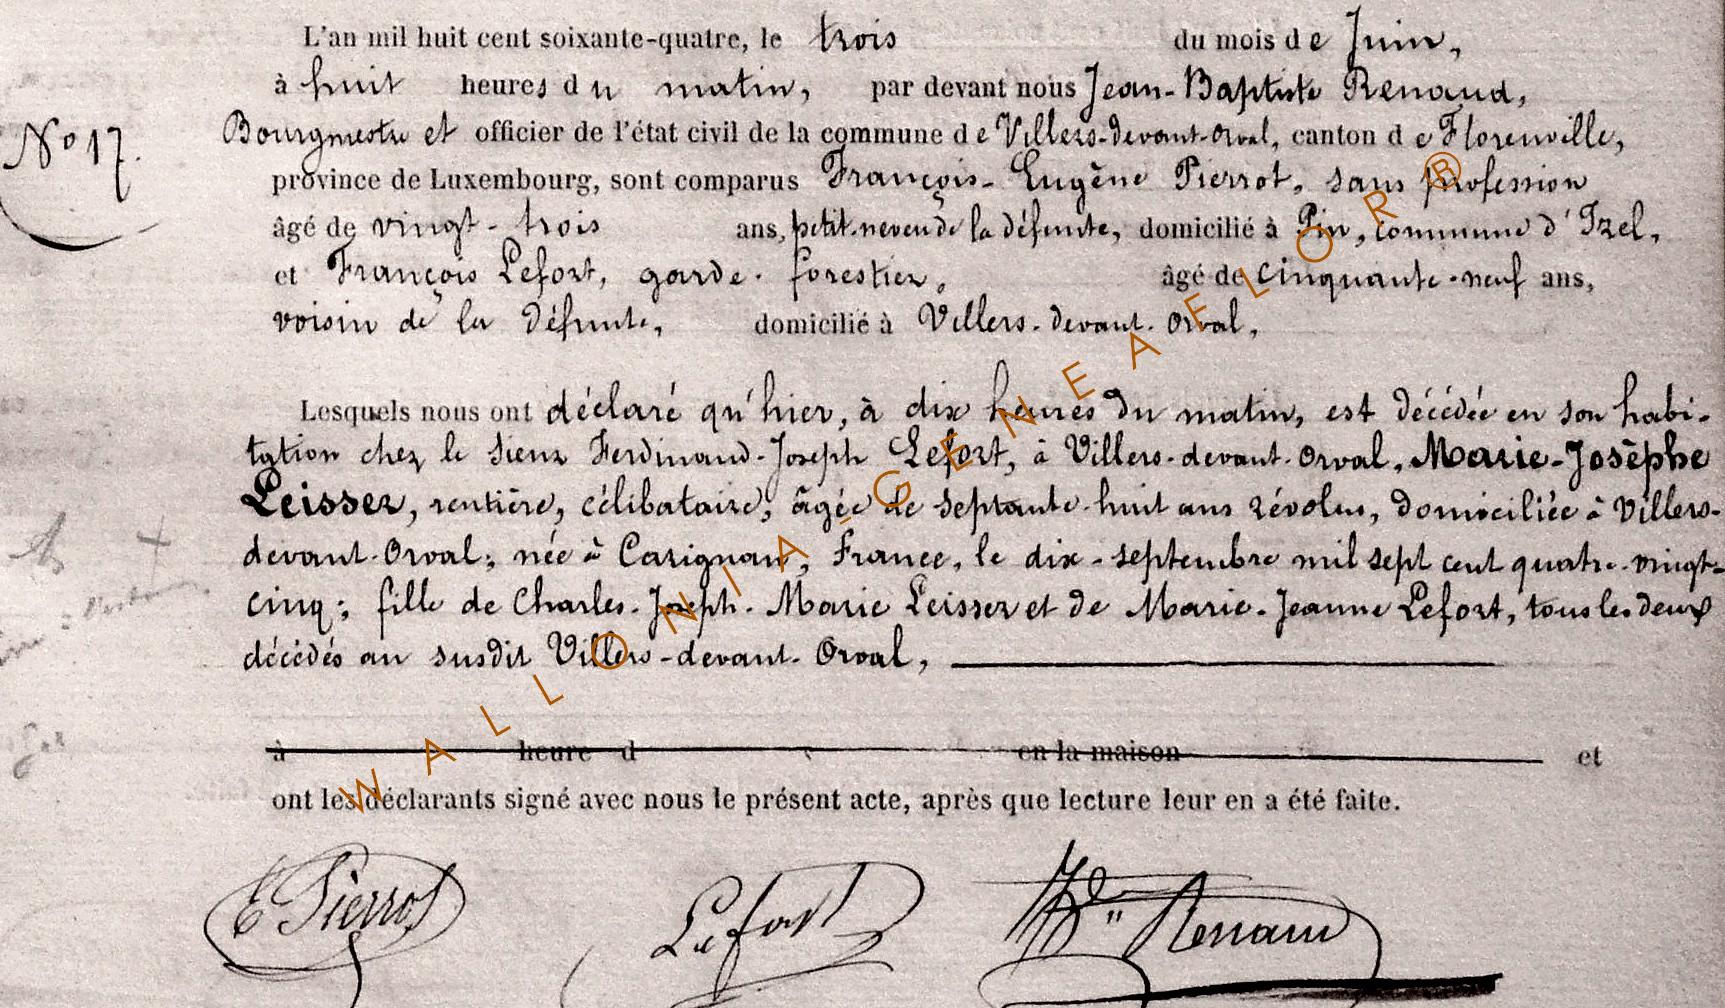 L'an mil huit cent soixante-quatre, le trois du mois de Juin,
à huit heures du matin, par devant nous Jean-Baptiste Renaud,
N° 17. Bourgmestre et officier de l'état civil de la commune de Villers-devant-Orval, canton de Florenville,
province de Luxembourg, sont comparus François-Eugène Pierrot, sans profession
âgé de vingt-trois ans, petit-neveu de la défunte, domicilié à Pin, commune d'Izel,
et François Lefort, garde-forestier, âgé de cinquante-neuf ans,
voisin de la défunte, domicilié à Villers-devant-Orval,
Lesquels nous ont déclaré qu'hier, à dix heures du matin, est décédée en son habi-
tation chez le sieur Ferdinand-Joseph Lefort, à Villers-devant-Orval, Marie-Josèphe
Leisser, rentière, célibataire, âgée de septante-huit ans révolus, domiciliée à Villers-
devant-Orval; née à Carignan, France, le dix-septembre mil sept cent quatre-vingt-
cinq; fille de Charles-Joseph-Marie Leisser et de Marie-Jeanne Lefort, tous les deux
décédés au susdit Villers-devant-Orval,
à heure d en la maison et
ont les déclarants signé avec nous le présent acte, après que lecture leur en a été faite.
E Pierrot Lefort Renaud
WALLONIA-GENEAFLOR®